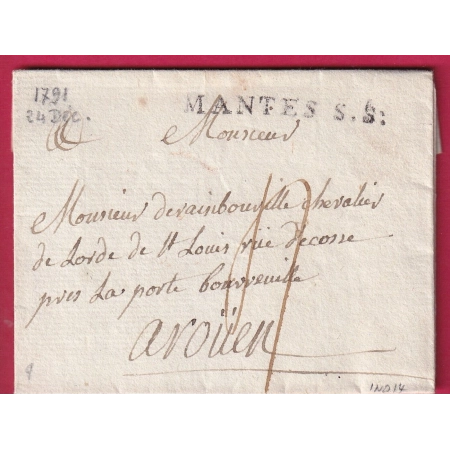 1791
24 Déc.
MANTES S. S:
Monsieur
Monsieur derainbouville chevalier
de Lorde de St Louis rue decosse
pres La porte bouvreuille
aroüen
IND 14